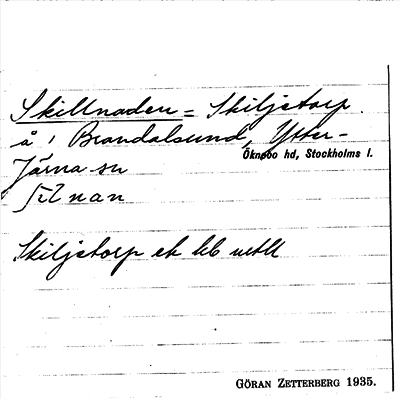 Skillnaden = Skiljstorp.
å 1 Brandalsund, Ytter-
Öknebo hd, Stockholms l.
Järna sn
Skiljstorp ek kb
GÖRAN ZETTERBERG 1935.